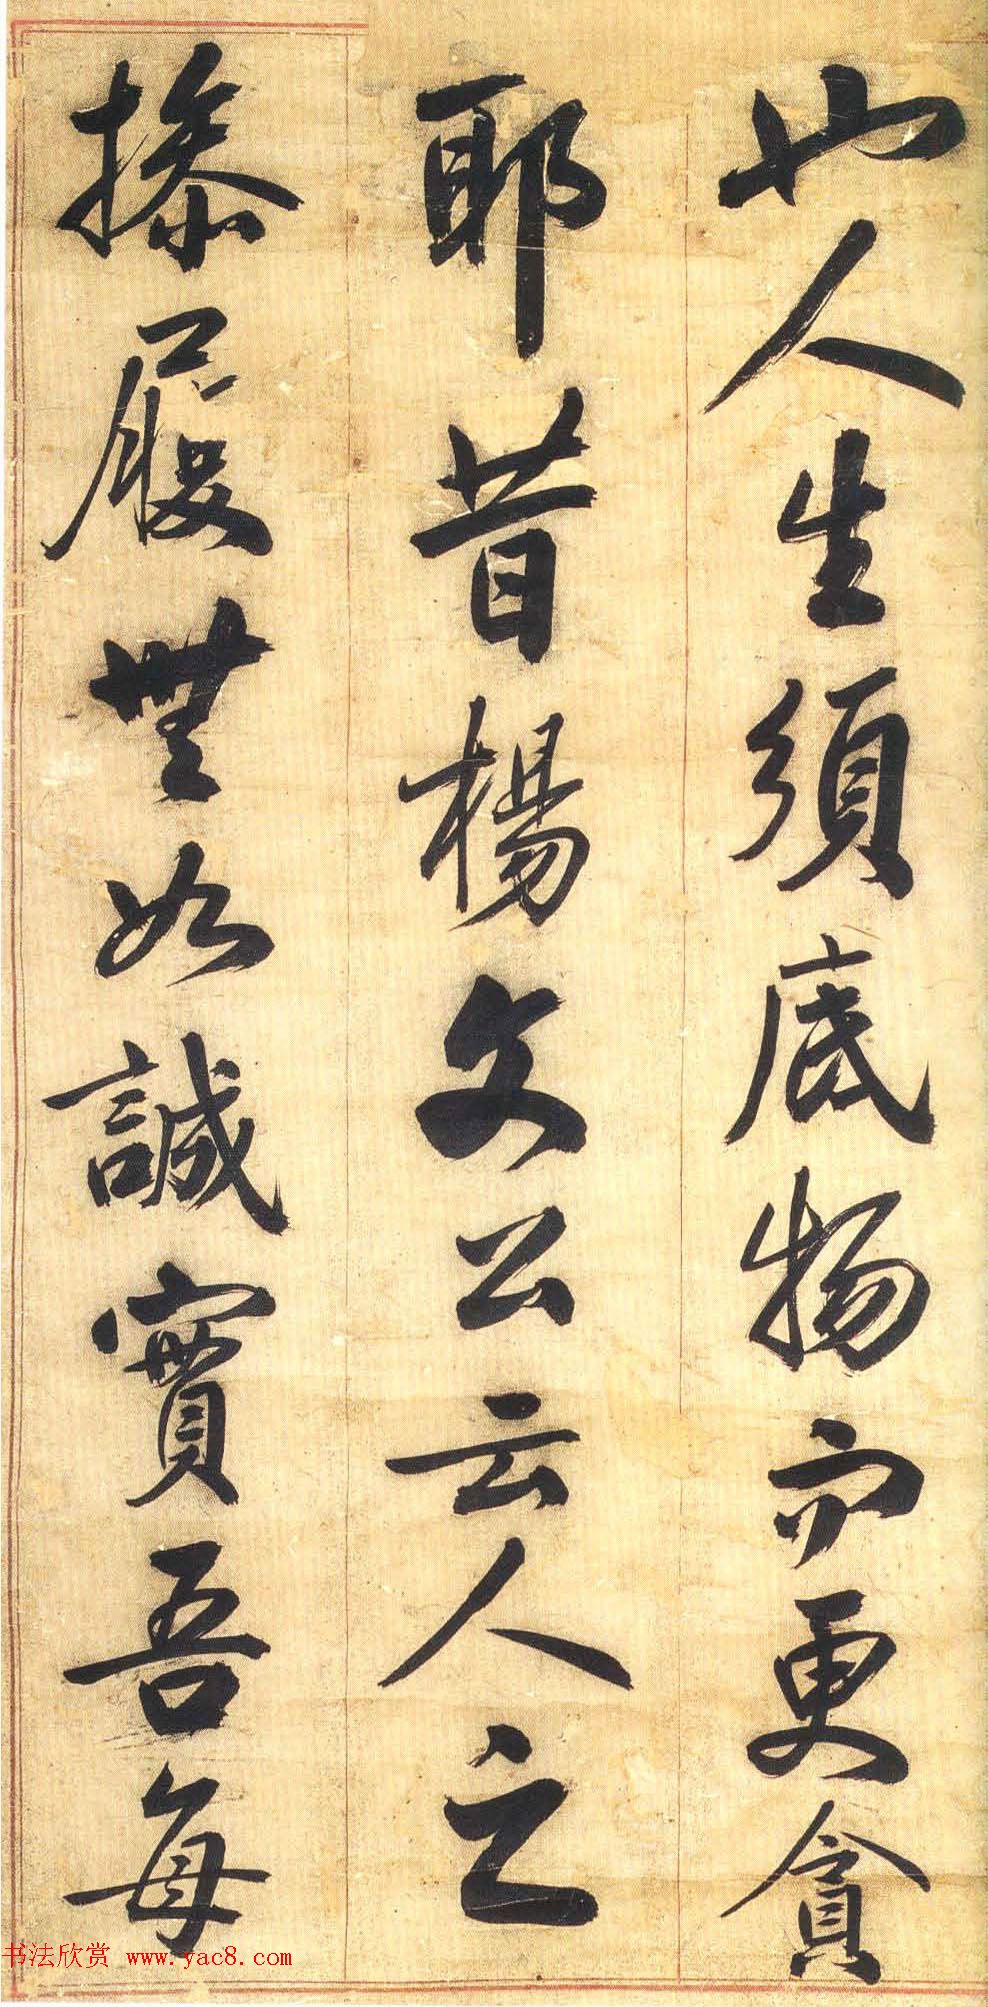 也人生須底物而更貪
耶昔楊文公云人之
操履無如誠實吾每
书法欣赏 www.yac8.com